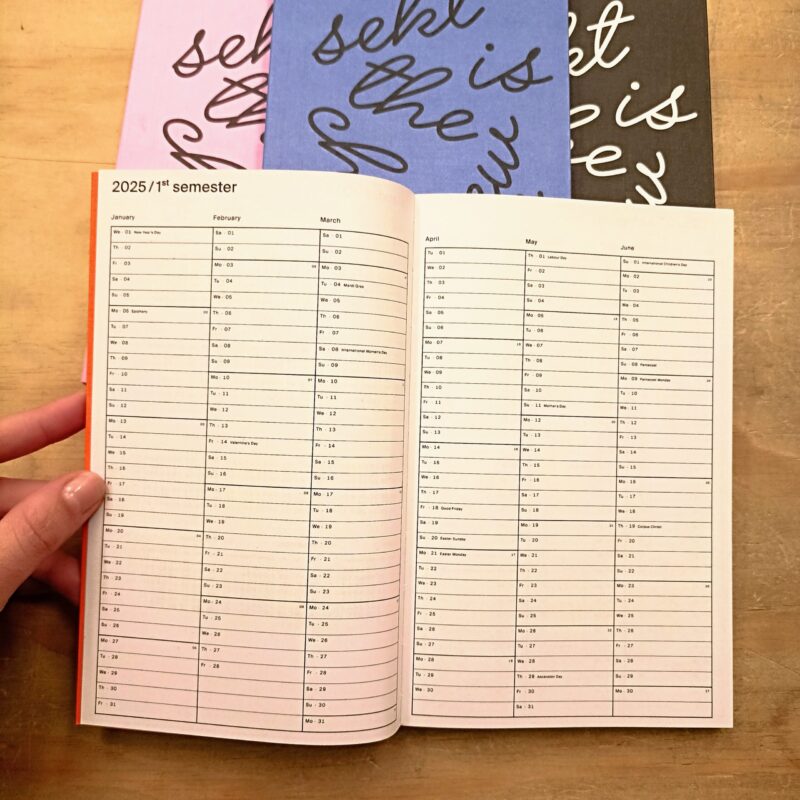 sekt
is
the
is
2025/1st semester
January
We · 01 New Year's Day
Th · 02
Fr · 03
Sa · 04
Su · 05
Mo · 06 Epiphany 02
Tu · 07
We · 08
Th · 09
Fr · 10
Sa · 11
Su · 12
Mo · 13 03
Tu · 14
We · 15
Th · 16
Fr · 17
Sa · 18
Su · 19
Mo · 20 04
Tu · 21
We · 22
Th · 23
Fr · 24
Sa · 25
Su · 26
Mo · 27 05
Tu · 28
We · 29
Th · 30
Fr · 31
February
Sa · 01
Su · 02
Mo · 03 06
Tu · 04
We · 05
Th · 06
Fr · 07
Sa · 08
Su · 09
Mo · 10 07
Tu · 11
We · 12
Th · 13
Fr · 14 Valentine's Day
Sa · 15
Su · 16
Mo · 17 08
Tu · 18
We · 19
Th · 20
Fr · 21
Sa · 22
Su · 23
Mo · 24 09
Tu · 25
We · 26
Th · 27
Fr · 28
March
Sa · 01
Su · 02
Mo · 03
Tu · 04 Mardi Gras
We · 05
Th · 06
Fr · 07
Sa · 08 International Women's Day
Su · 09
Mo · 10
Tu · 11
We · 12
Th · 13
Fr · 14
Sa · 15
Su · 16
Mo · 17
Tu · 18
We · 19
Th · 20
Fr · 21
Sa · 22
Su · 23
Mo · 24
Tu · 25
We · 26
Th · 27
Fr · 28
Sa · 29
Su · 30
Mo · 31
April
Tu · 01
We · 02
Th · 03
Fr · 04
Sa · 05
Su · 06
Mo · 07 15
Tu · 08
We · 09
Th · 10
Fr · 11
Sa · 12
Su · 13
Mo · 14 16
Tu · 15
We · 16
Th · 17
Fr · 18 Good Friday
Sa · 19
Su · 20 Easter Sunday
Mo · 21 Easter Monday 17
Tu · 22
We · 23
Th · 24
Fr · 25
Sa · 26
Su · 27
Mo · 28 18
Tu · 29
We · 30
May
Th · 01 Labour Day
Fr · 02
Sa · 03
Su · 04
Mo · 05 19
Tu · 06
We · 07
Th · 08
Fr · 09
Sa · 10
Su · 11 Mother's Day
Mo · 12 20
Tu · 13
We · 14
Th · 15
Fr · 16
Sa · 17
Su · 18
Mo · 19 21
Tu · 20
We · 21
Th · 22
Fr · 23
Sa · 24
Su · 25
Mo · 26 22
Tu · 27
We · 28
Th · 29 Ascension Day
Fr · 30
Sa · 31
June
Su · 01 International Children's Day
Mo · 02 23
Tu · 03
We · 04
Th · 05
Fr · 06
Sa · 07
Su · 08 Pentecost
Mo · 09 Pentecost Monday 24
Tu · 10
We · 11
Th · 12
Fr · 13
Sa · 14
Su · 15
Mo · 16 25
Tu · 17
We · 18
Th · 19 Corpus Christi
Fr · 20
Sa · 21
Su · 22
Mo · 23 26
Tu · 24
We · 25
Th · 26
Fr · 27
Sa · 28
Su · 29
Mo · 30 27